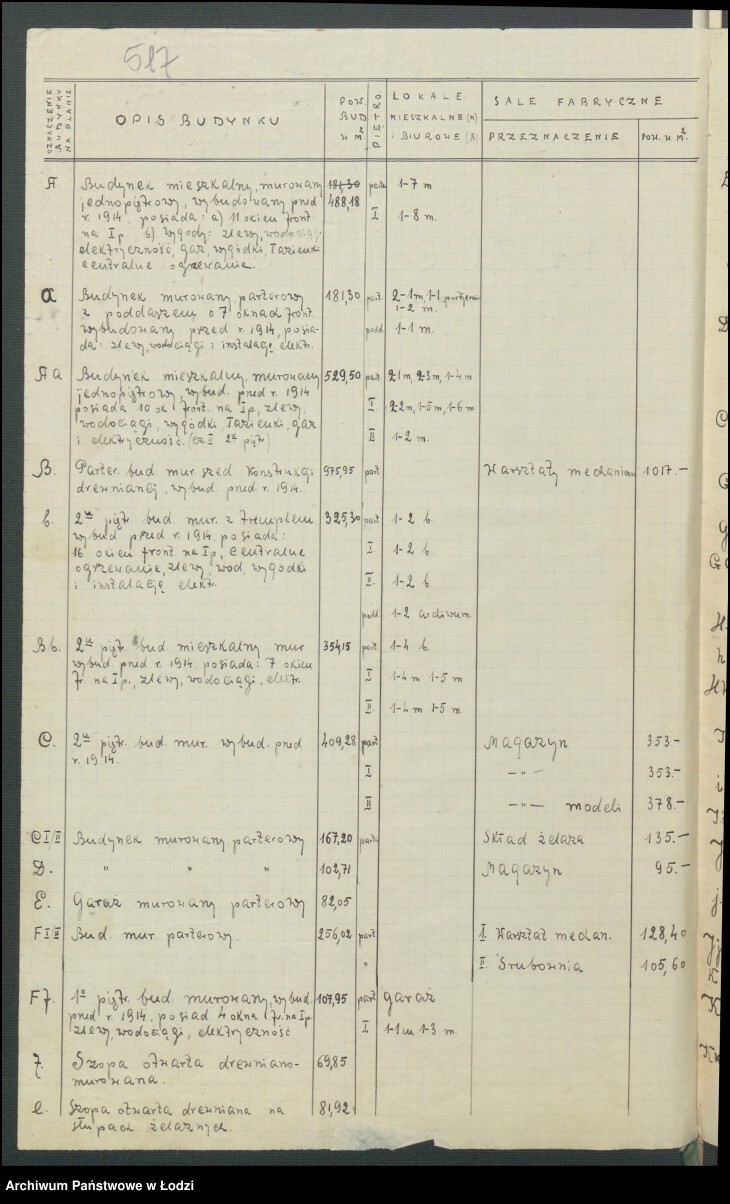 517
OZNACZENIE BUDYNKU NA PLANIE
OPIS BUDYNKU
POW. BUD W M²
PIĘTRO
LOKALE MIESZKALNE (M) I BIUROWE (B)
SALE FABRYCZNE
PRZEZNACZENIE
POW. W M²
A Budynek mieszkalny, murowany 181,30 part. 1-7 m
jednopiętrowy, wybudowany przed 488,18
r. 1914, posiada: a) 11 okien front I 1-8 m.
na I p. b) wygody: zlewy, wodociągi
elektryczność, gaz, wygódki, łazienki
centralne ogrzewanie.
a Budynek murowany parterowy 181,30 part. 2-1m, 1-1 portjernia
z poddaszem o 7 oknach front. 1-2 m.
wybudowany przed r. 1914, posia- podd. 1-1 m.
da: zlewy, wodociągi i instalację elektr.
Aa Budynek mieszkalny, murowany 529,50 part. 2-1m, 2-3m, 1-4 m
jednopiętrowy, wybud. przed r. 1914
posiada 10 ok. front. na I p., zlewy, I. 2-2m, 1-5m, 1-6 m.
wodociągi, wygódki, łazienki, gaz
i elektryczność. (cz II 2gie piętr) II 1-2 m.
B. Parter. bud. mur. szed konstrukcji 975,95 part Warsztaty mechaniczn 1017.-
drewnianej, wybud. przed. r. 1914.
b. 2u piętr. bud. mur. z tremplem 325,30 part 1-2 b.
wybud przed r. 1914 posiada:
16 okien front na I p, centralne I. 1-2 b.
ogrzewanie, zlewy, wod, wygódki
i instalację elektr. II. 1-2 b.
podd. 1-2 archiwum.
Bb. 2u piętr bud. mieszkalny mur 354,15 part 1-4 b.
wybud. przed r. 1914. posiada: 7 okien
fr. na I p., zlewy, wodociągi, elektr. I 1-4 m 1-5 m
II. 1-4 m 1-5 m.
C. 2u piętr. bud. mur. wybud. przed 409,28 part Magazyn 353.-
r. 1914.
I -"- 353.-
II -"- modeli 378.-
C I/II Budynek murowany parterowy 167,20 parte Skład żelaza 135.-
D. " " " 102,71 Magazyn 95.-
E. Garaż murowany parterowy 82,05
F I/II Bud. mur. parterowy. 256,02 part I. Warsztat mechan. 128,40
" II. Śrubownia 105,60
Ff. 1o piętr. bud. murowany, wybud. 107,95 part garaż
przed r. 1914, posiad 4 okna fr. na I p.
zlewy, wodociągi, elektryczność I 1-1m 1-3 m.
f. Szopa otwarta drewniano- 69,85
murowana.
e. Szopa otwarta drewniana na 81,92
słupach żelaznych.
Archiwum Państwowe w Łodzi